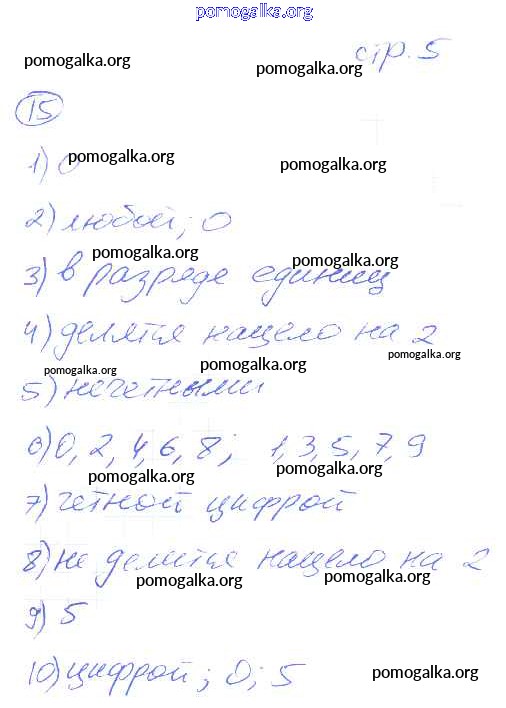 pomogalka.org
стр. 5
pomogalka.org pomogalka.org
15
pomogalka.org pomogalka.org
1) 0
2) любой; 0
pomogalka.org pomogalka.org
3) в разряде единиц
4) делятся нацело на 2
pomogalka.org pomogalka.org pomogalka.org
5) нечетными
6) 0, 2, 4, 6, 8; 1, 3, 5, 7, 9
pomogalka.org pomogalka.org
7) четной цифрой
8) не делится нацело на 2
pomogalka.org pomogalka.org
9) 5
10) цифрой; 0; 5
pomogalka.org